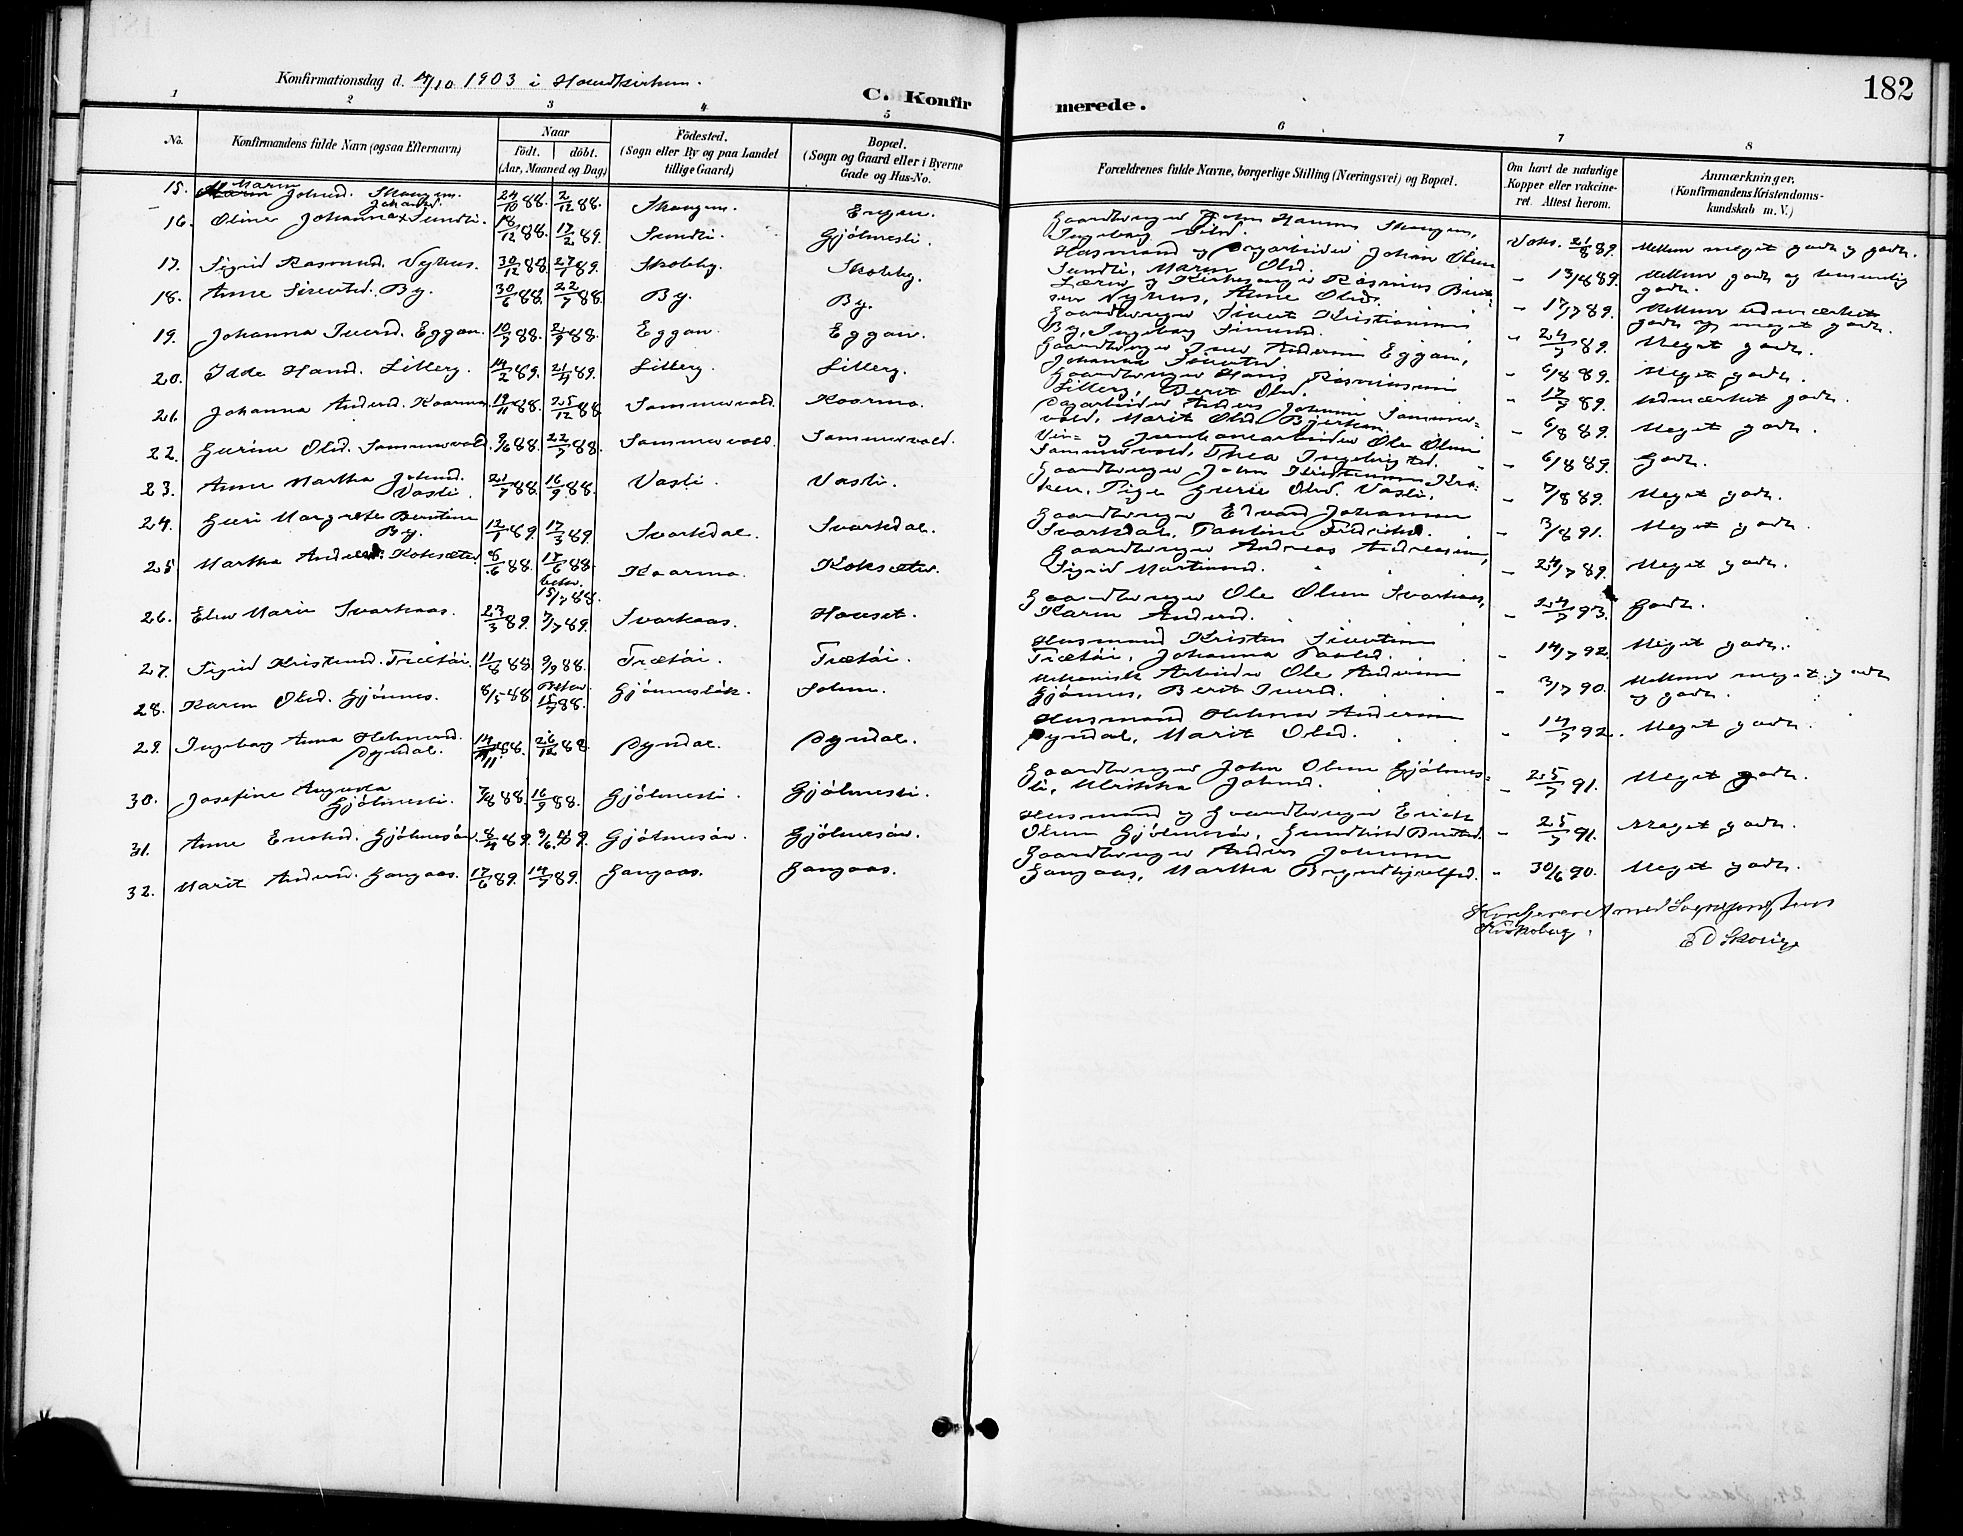 182
Konfirmationsdag d. 4/10 1903 i Hovedkirken.
C. Konfirmerede.
1 2 3 4 5 6 7 8
No.
Konfirmandens fulde Navn (ogsaa Efternavn)
Naar
födt. döbt.
(Aar, Maaned og Dag)
Födested.
(Sogn eller By og paa Landet
tillige Gaard)
Bopæl.
(Sogn og Gaard eller i Byerne
Gade og Hus-No.
Forældrenes fulde Navne, borgerlige Stilling (Næringsvei) og Bopæl.
Om havt de naturlige
Kopper eller vakcine-
ret. Attest herom.
Anmærkninger.
(Konfirmandens Kristendoms-
kundskab m. V.)
15. Maren Johnsd. Skaugen. 24/10 88. 2/12 88. Skaugen. Engen. Gaardbruger John Hansen Skaugen,
Ingeborg Olsd. Vaks. 21/8 89. Mellem meget godt og godt.
16. Oline Johanna Johansd. Sundli. 18/12 88. 17/2 89. Sundli. Gjölmesli. Husmand og Dagarbeider Johan Olsen
Sundli, Maren Olsd. " 13/8 89. Mellem godt og temmelig
godt.
17. Sigrid Rasmusd. Nyhus. 30/12 88. 27/1 89. Skolby. Skolby. Lærer og Kirkesanger Rasmus Bent-
sen Nyhus, Anne Olsd. " 17/7 89. Mellem udmærket
godt og meget godt.
18. Anne Sivertsd. By. 30/6 88. 22/7 88. By. By. Gaardbruger Sivert Kristiansen
By, Ingeborg Simonsd. " 24/7 89. Meget godt.
19. Johanna Iversd. Eggan. 10/7 88. Eggan. Eggan. Gaardbruger Iver Andersen Eggan,
Johanna Sivertsd. " 6/8 89. Meget godt.
20. Idde Hansd. Lillery. 14/2 89. 21/4 89. Lillery. Lillery. Gaardbruger Hans Rasmussen
Lillery, Berit Olsd. " 17/7 89. Udmærket godt.
21. Johanna Andersd. Kaarmo. 19/11 88. 25/12 88. Sommervold. Kaarmo. Dagarbeider Anders Johnsen Sommer-
vold, Marit Olsd. Bjerkan. " 6/8 89. Meget godt.
22. Gurine Olsd. Sommervold. 9/6 88. 22/7 88. Sommervold. Sommervold. Vei- og Jernbanearbeider Ole Olsen
Sommervold, Thea Ingebrigtsd. " 6/8 89. Godt.
23. Anne Martha Johnsd.
Vasli. 21/7 88. 16/9 88. Vasli. Vasli. Gaardbruger John Kristensen Kra-
ken, Pige Guri Olsd. Vasli. " 7/8 89. Meget godt.
24. Guri Margrete Berntine
By. 12/1 89. 17/3 89. Svorkdal. Svorkdal. Gaardbruger Edvard Johansen
Svorkdal, Pauline Fredriksd. " 3/8 91. Meget godt.
25. Martha Andreasd. Koksæter. 8/6 88. 17/6 88.
bekr.
15/7 88. Kaarmo. Koksæter. Gaardbruger Andreas Andreassen,
Sigrid Martinusd. " 24/7 89. Meget godt.
26. Elen Marie Svorkaas. 23/3 89. 7/7 89. Svorkaas. Hovset. Gaardbruger Ole Olsen Svorkaas,
Karen Andersd. " 24/7 93. Godt.
27. Sigrid Kristensd. Trætöi. 11/8 88. 9/9 88. Trætöi. Trætöi. Husmand Kristen Sivertsen
Trætöi, Johanna Paulsd. " 14/7 92. Meget godt.
28. Karen Olsd. Gjönnes. 8/5 88. Bekr.
15/7 88. Gjönneslök. Solem. Mekanisk Arbeider Ole Andersen
Gjönnes, Berit Iversd. " 3/7 90. Mellem meget godt
og godt.
29. Ingeborg Anna Helmersd.
Dyrdal. 14/11 88. 26/12 88. Dyrdal. Dyrdal. Husmand Helmer Andersen
Dyrdal, Marit Olsd. " 14/7 92. Meget godt.
30. Josefine Augusta
Gjölmesli. 7/8 88. 16/9 88. Gjölmesli. Gjölmesli. Gaardbruger John Olsen Gjölmes-
li, Ulrikka Johnsd. " 25/7 91. Meget godt.
31. Anne Eriksd. Gjölmesör. 8/4 89. 9/6 89. Gjölmesör. Gjölmesör. Husmand og Gaardbruger Erick
Olsen Gjölmesör, Gunhild Berntsd. " 25/7 91. Meget godt.
32. Marit Andersd. Gangaas. 17/6 89. 14/7 89. Gangaas. Gangaas. Gaardbruger Anders Johnsen
Gangaas, Martha Brynhjelfsd. " 30/6 90. Meget godt.
Konfereret med Sogneprestens
Kirkebog.